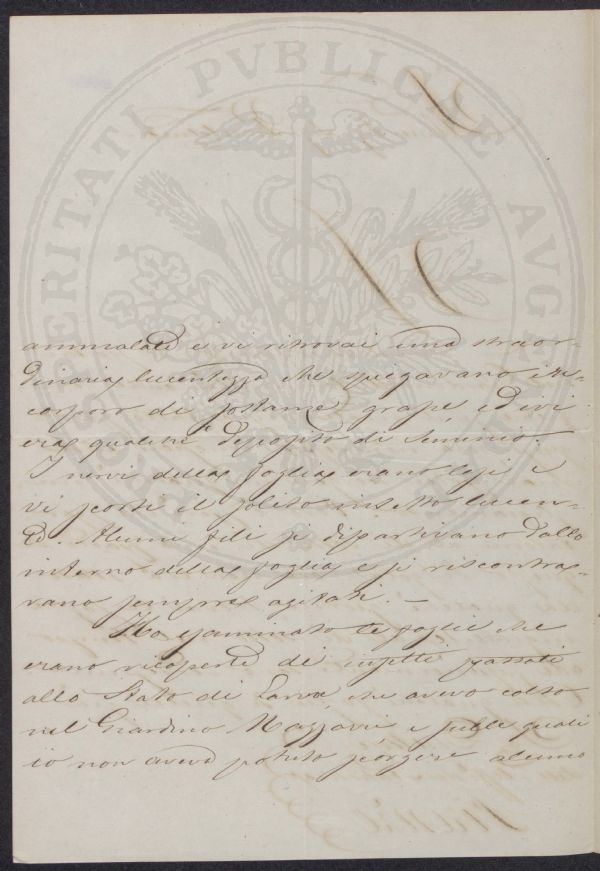 PROSPERITATI PVBLICAE AVGENDAE
ammalate e vi ritrovai una straor-
dinaria lucentezza che spiegavano il
corporo di sostanze grasse ed ivi
era qualche deposito di
I nervi della foglia erano lesi e
vi scorsi il solito insetto lucen-
te. Alcuni fili si dipartivano dallo
interno della foglia e si riscontra-
vano sempre agitati. —
Ho esaminato le foglie che
erano ricoperte di insetti passati
allo Stato di Larva, che avevo colto
nel Giardino e sulle quali
io non aveva potuto scorgere alcuno